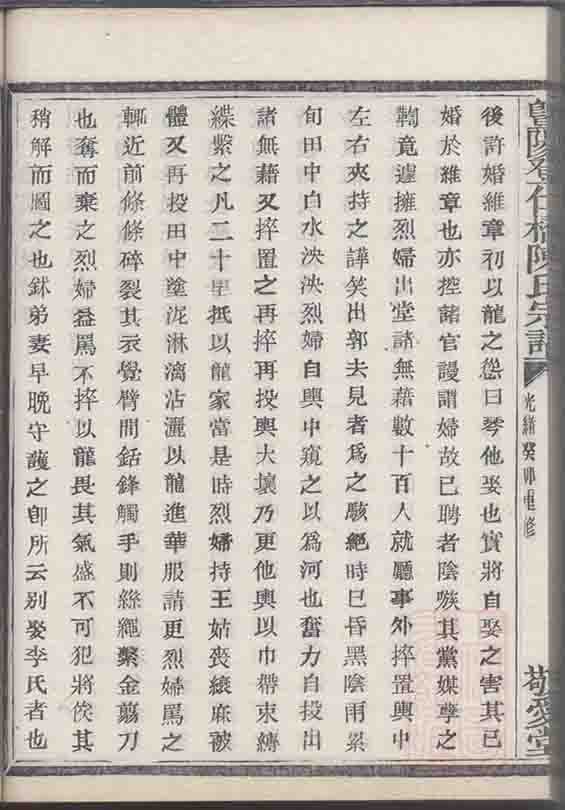 暨陽孝仁橋陳氏宗譜
光緒癸卯重修
敬愛堂
後許婚維章初以龍之怨曰琴他娶也實將自娶之害其已
婚於維章也亦控諸官謾謂婦故已聘者陰嗾其黨媒孽之
鞫竟遽擁烈婦出堂諸無藉數十百人就廳事外捽置輿中
左右夾持之譁笑出郭去見者爲之駭絕時已昏黑陰雨累
旬田中白水泱泱烈婦自輿中窺之以爲河也奮力自投出
諸無藉又捽置之再捽再投輿大壞乃更他輿以巾帶束縛
緤縶之凡二十里抵以龍家當是時烈婦持王姑喪縗麻被
體又再投田中塗泥淋漓沾灑以龍進華服請更烈婦罵之
輒近前條條碎裂其衣覺臂間銛鋒觸手則絲繩繫金剪刀
也奪而棄之烈婦益罵不捽以龍畏其氣盛不可犯將俟其
稍解而圖之也鉥弟妻早晚守護之卽所云別娶李氏者也